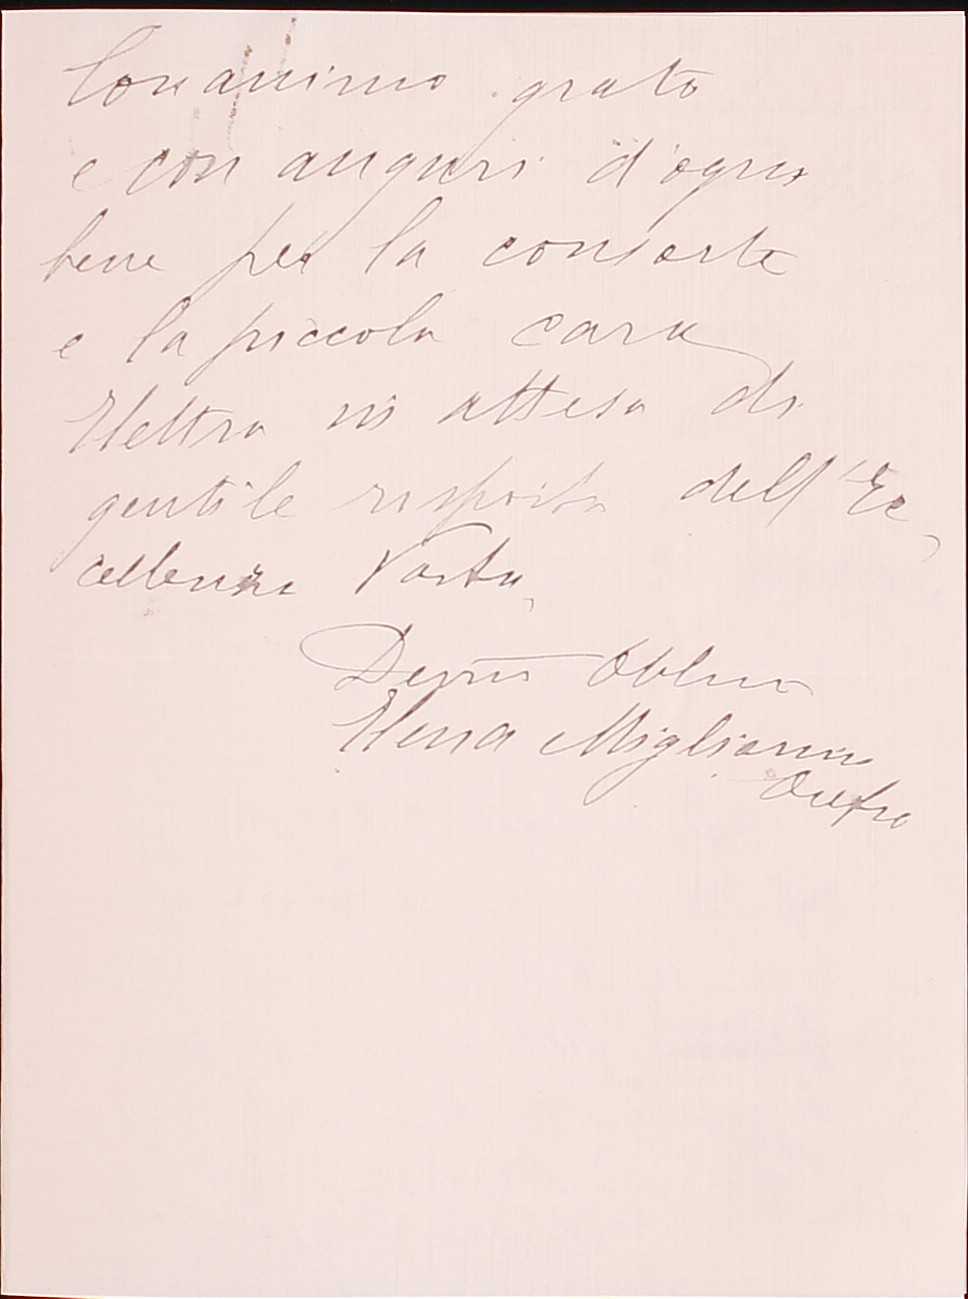 Con animo grato
e con auguri d'ogni
bene per la consorte
e la piccola cara
Elettra in attesa di
gentile risposta dell'Ec
cellenza Vostra,
Dev.ma Obbl.ma
Elena Miglianini